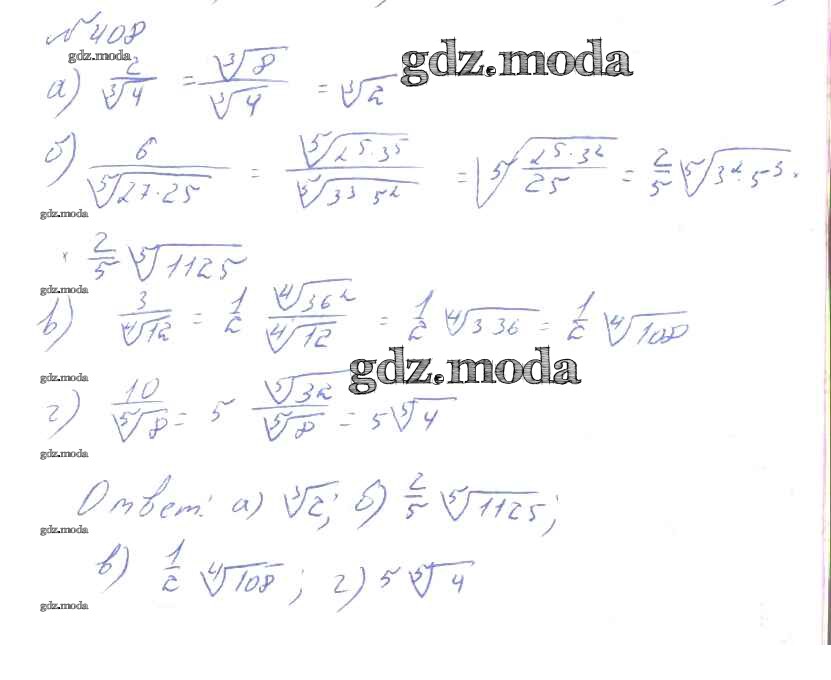 № 408
gdz.moda
gdz.moda
а) 2/∛4 = ∛8/∛4 = ∛2
б) 6/⁵√(27·25) = ⁵√(2⁵·3⁵)/⁵√(3³ 5²) = ⁵√(2⁵·3²/25) = 2/5 ⁵√(3²·5³) ·
gdz.moda
× 2/5 ⁵√1125
gdz.moda
в) 3/⁴√12 = 1/2 ⁴√36²/⁴√12 = 1/2 ⁴√(3 36) = 1/2 ⁴√108
gdz.moda
gdz.moda
г) 10/⁵√8 = 5 ⁵√32/⁵√8 = 5 ⁵√4
gdz.moda
Ответ: а) ∛2; б) 2/5 ⁵√1125;
gdz.moda
в) 1/2 ⁴√108; г) 5 ⁵√4
gdz.moda